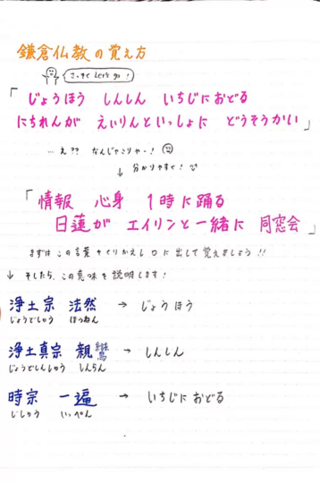 鎌倉仏教の覚え方
さっそく Let's go!
「じょうほう しんしん いちじにおどる
にちれんが えいりんといっしょに どうそうかい」
…え?? なんじゃこりゃー!
↓ 分かりやすく!
「情報 心身 1時に踊る
日蓮が エイリンと一緒に 同窓会」
まずは この言葉をくりかえし口に出して覚えましょう!!
↓ そしたら、この意味を説明します!
浄土宗 法然 → じょうほう
じょうどしゅう ほうねん
浄土真宗 親鸞 → しんしん
じょうどしんしゅう しんらん
時宗 一遍 → いちじにおどる
じしゅう いっぺん